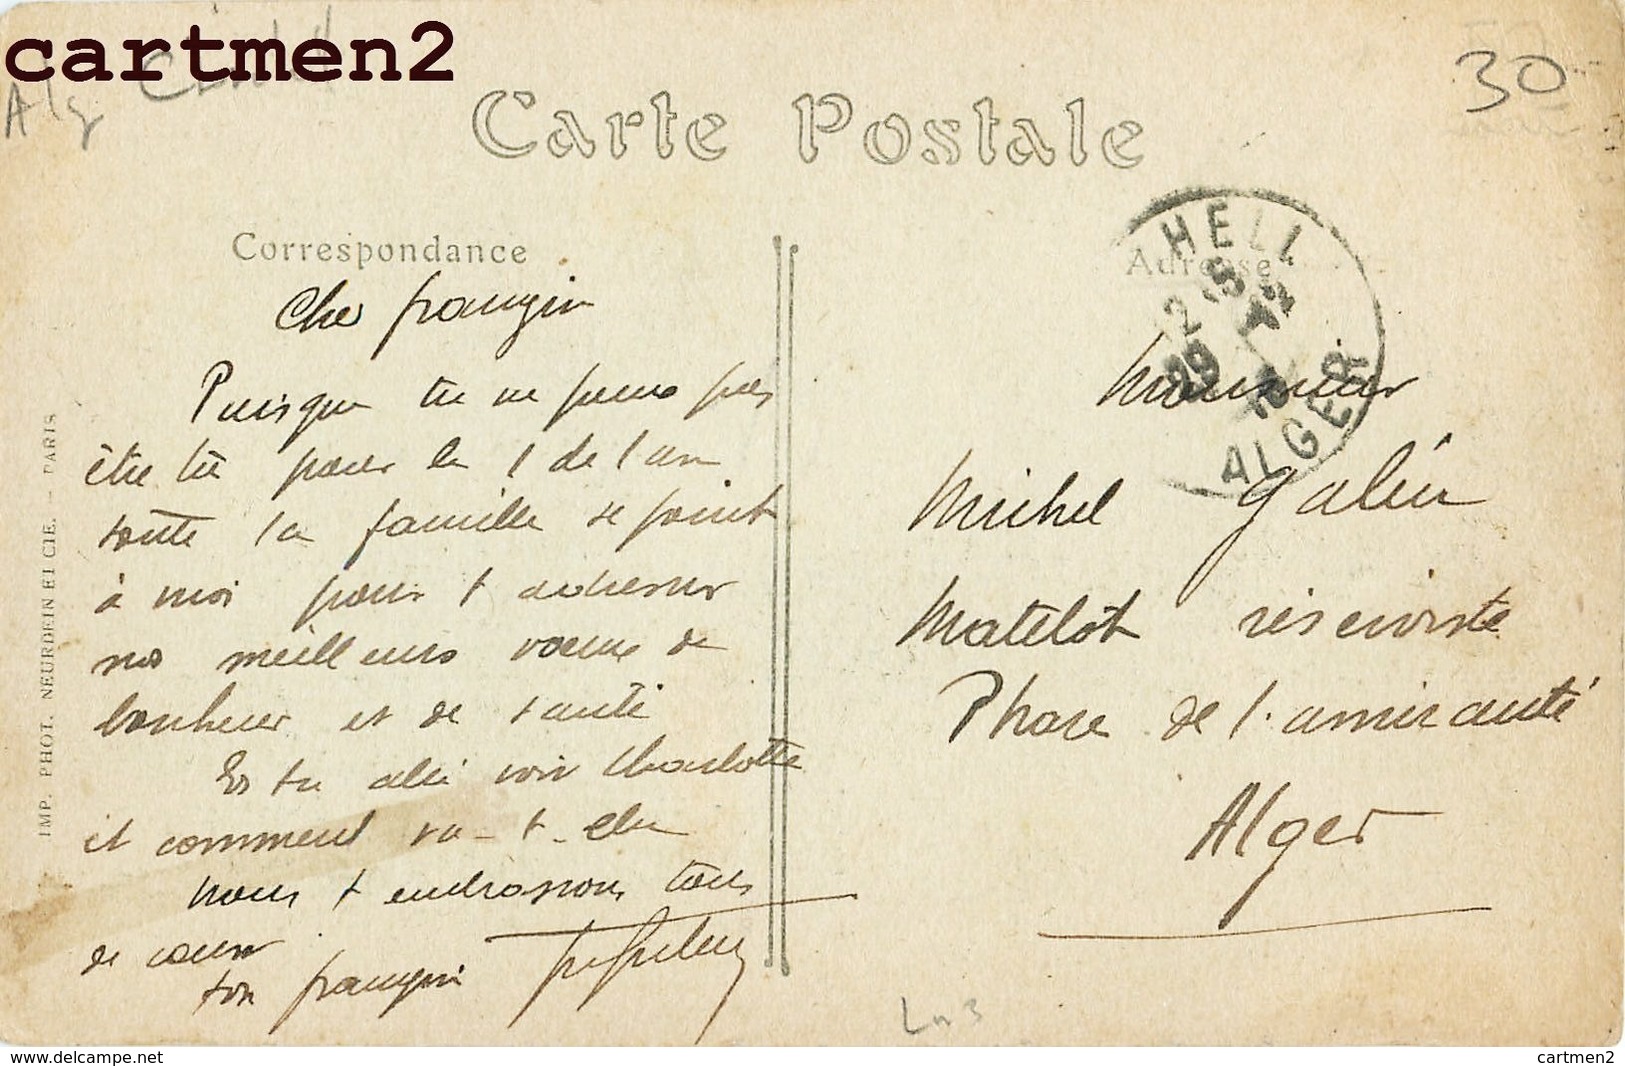 cartmen2
Alg
30
Carte Postale
Correspondance
Adresse
HELL
ALGER
Cher frangin
Puisque tu ne peux pas
être là pour le 1 de l'an
toute la famille se joint
à moi pour t adresser
nos meilleurs voeux de
bonheur et de santé
Es tu allé voir Charlotte
et comment va-t-elle
nous t embrassons tous
de coeur
ton frangin
Monsieur
Michel
Matelot réserviste
Phare de l'amirauté
Alger
IMP. PHOT. NEURDEIN ET CIE. - PARIS
delcampe.net
cartmen2